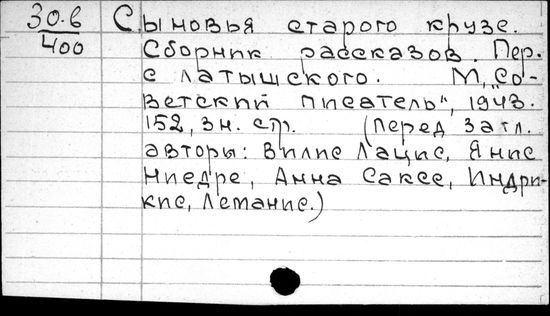 30.6 Сыновья старого крузе.
400 Сборник рассказов. Пер.
с латышского. М, „Со-
ветский писатель", 1943.
152, 3 н. стр. (Перед загл.
авторы: Вилис Лацис, Янис
Ниедре, Анна Саксе, Индри-
кис, Лемание.)